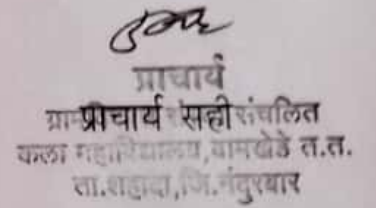 प्राचार्य
प्राचार्य सही संचलित
कला महाविद्यालय, बामखेडे त.त.
ता.शहादा,जि.नंदुरबार